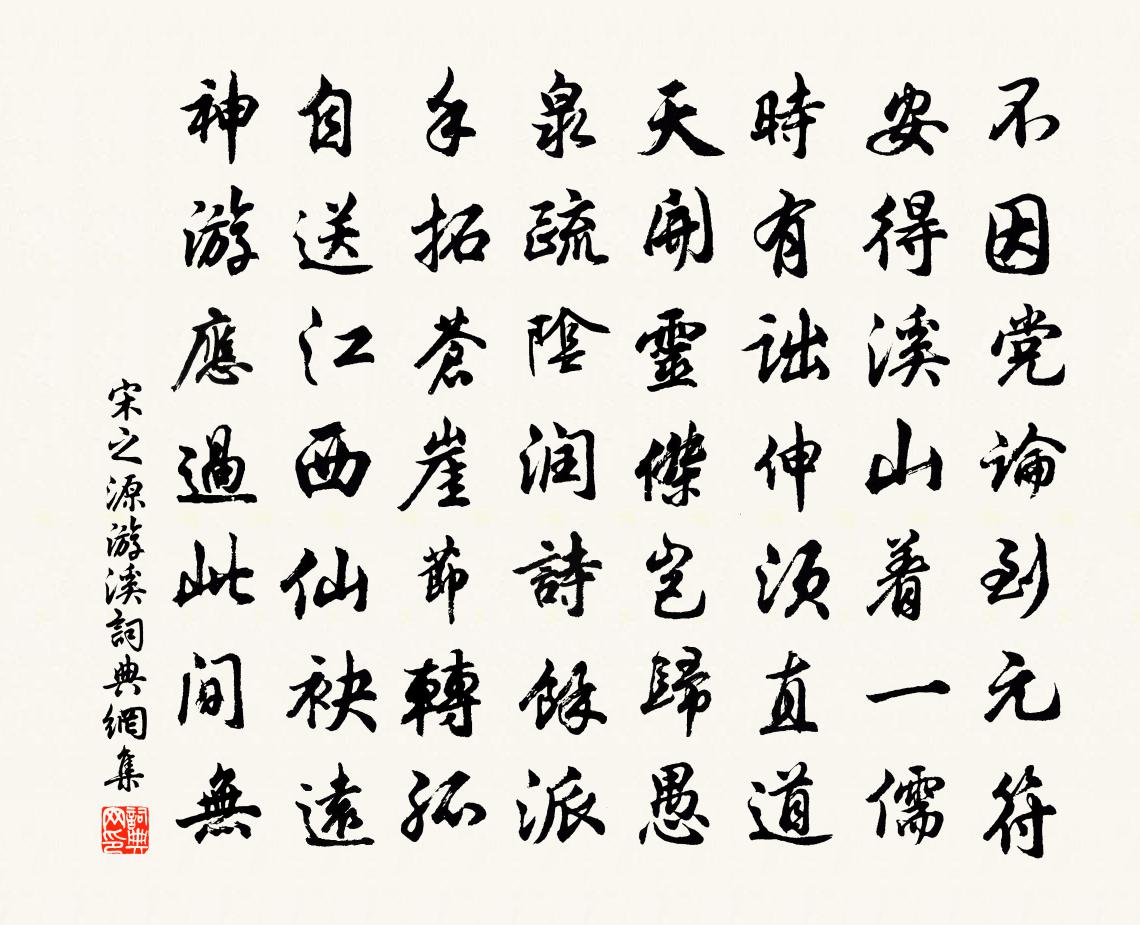 不因党论到元符
安得溪山着一儒
時有詘伸须直道
天開靈傑豈歸愚
泉疏陰润詩餘派
手拓蒼崖節轉孤
自送江西仙袂遠
神游應過此间無
宋之源游溪詞典網集
詞典网印